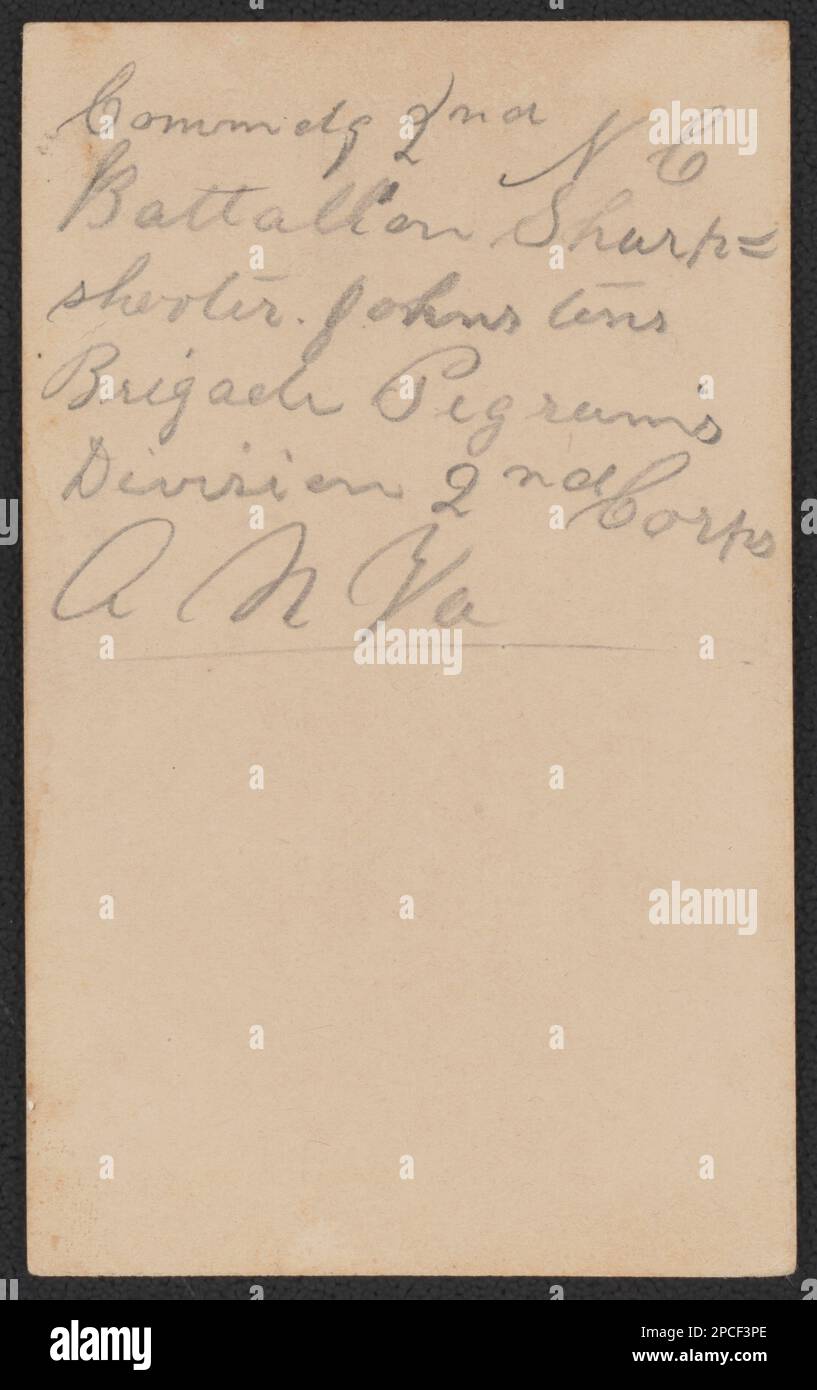 Commdg 2nd N C
Battallion Sharp=
shooters. Johnstons
Brigade Pegram's
Division 2nd Corps
A N Va
alamy
alamy
alamy
alamy
Image ID: 2PCF3PE
www.alamy.com